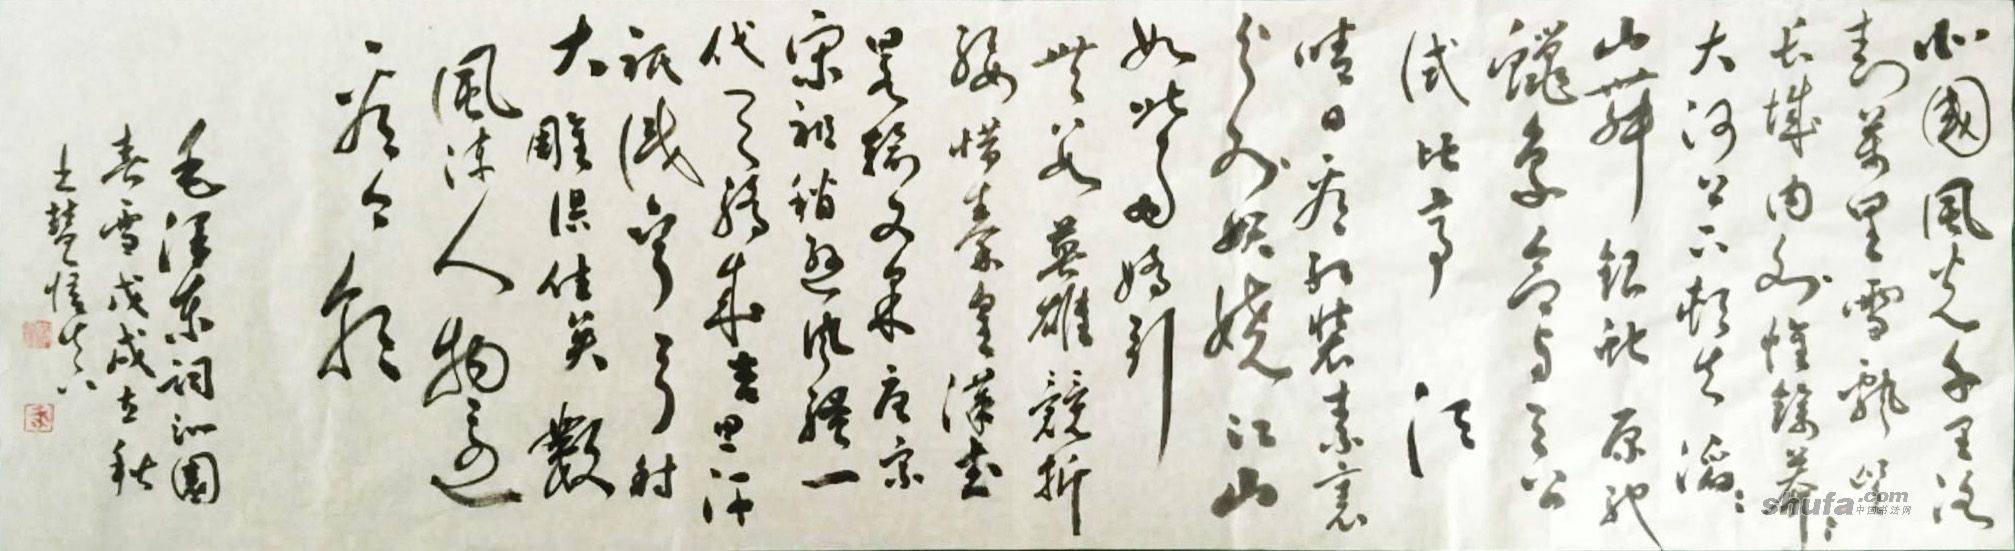 北國風光千里冰
封萬里雪飄望
長城内外惟餘莽々
大河上下頓失滔々
山舞銀蛇原馳
蠟象欲与天公
試比高 須
晴日看紅裝素裹
分外妖嬈江山
如此多嬌引
無数英雄競折
腰惜秦皇漢武
略輸文采唐宗
宋祖稍遜風騷一
代天驕成吉思汗
祇識彎弓射
大雕俱往矣數
風流人物還
看今朝
毛澤東詞沁園
春雪戊戌立秋
shufa.com
中国书法网